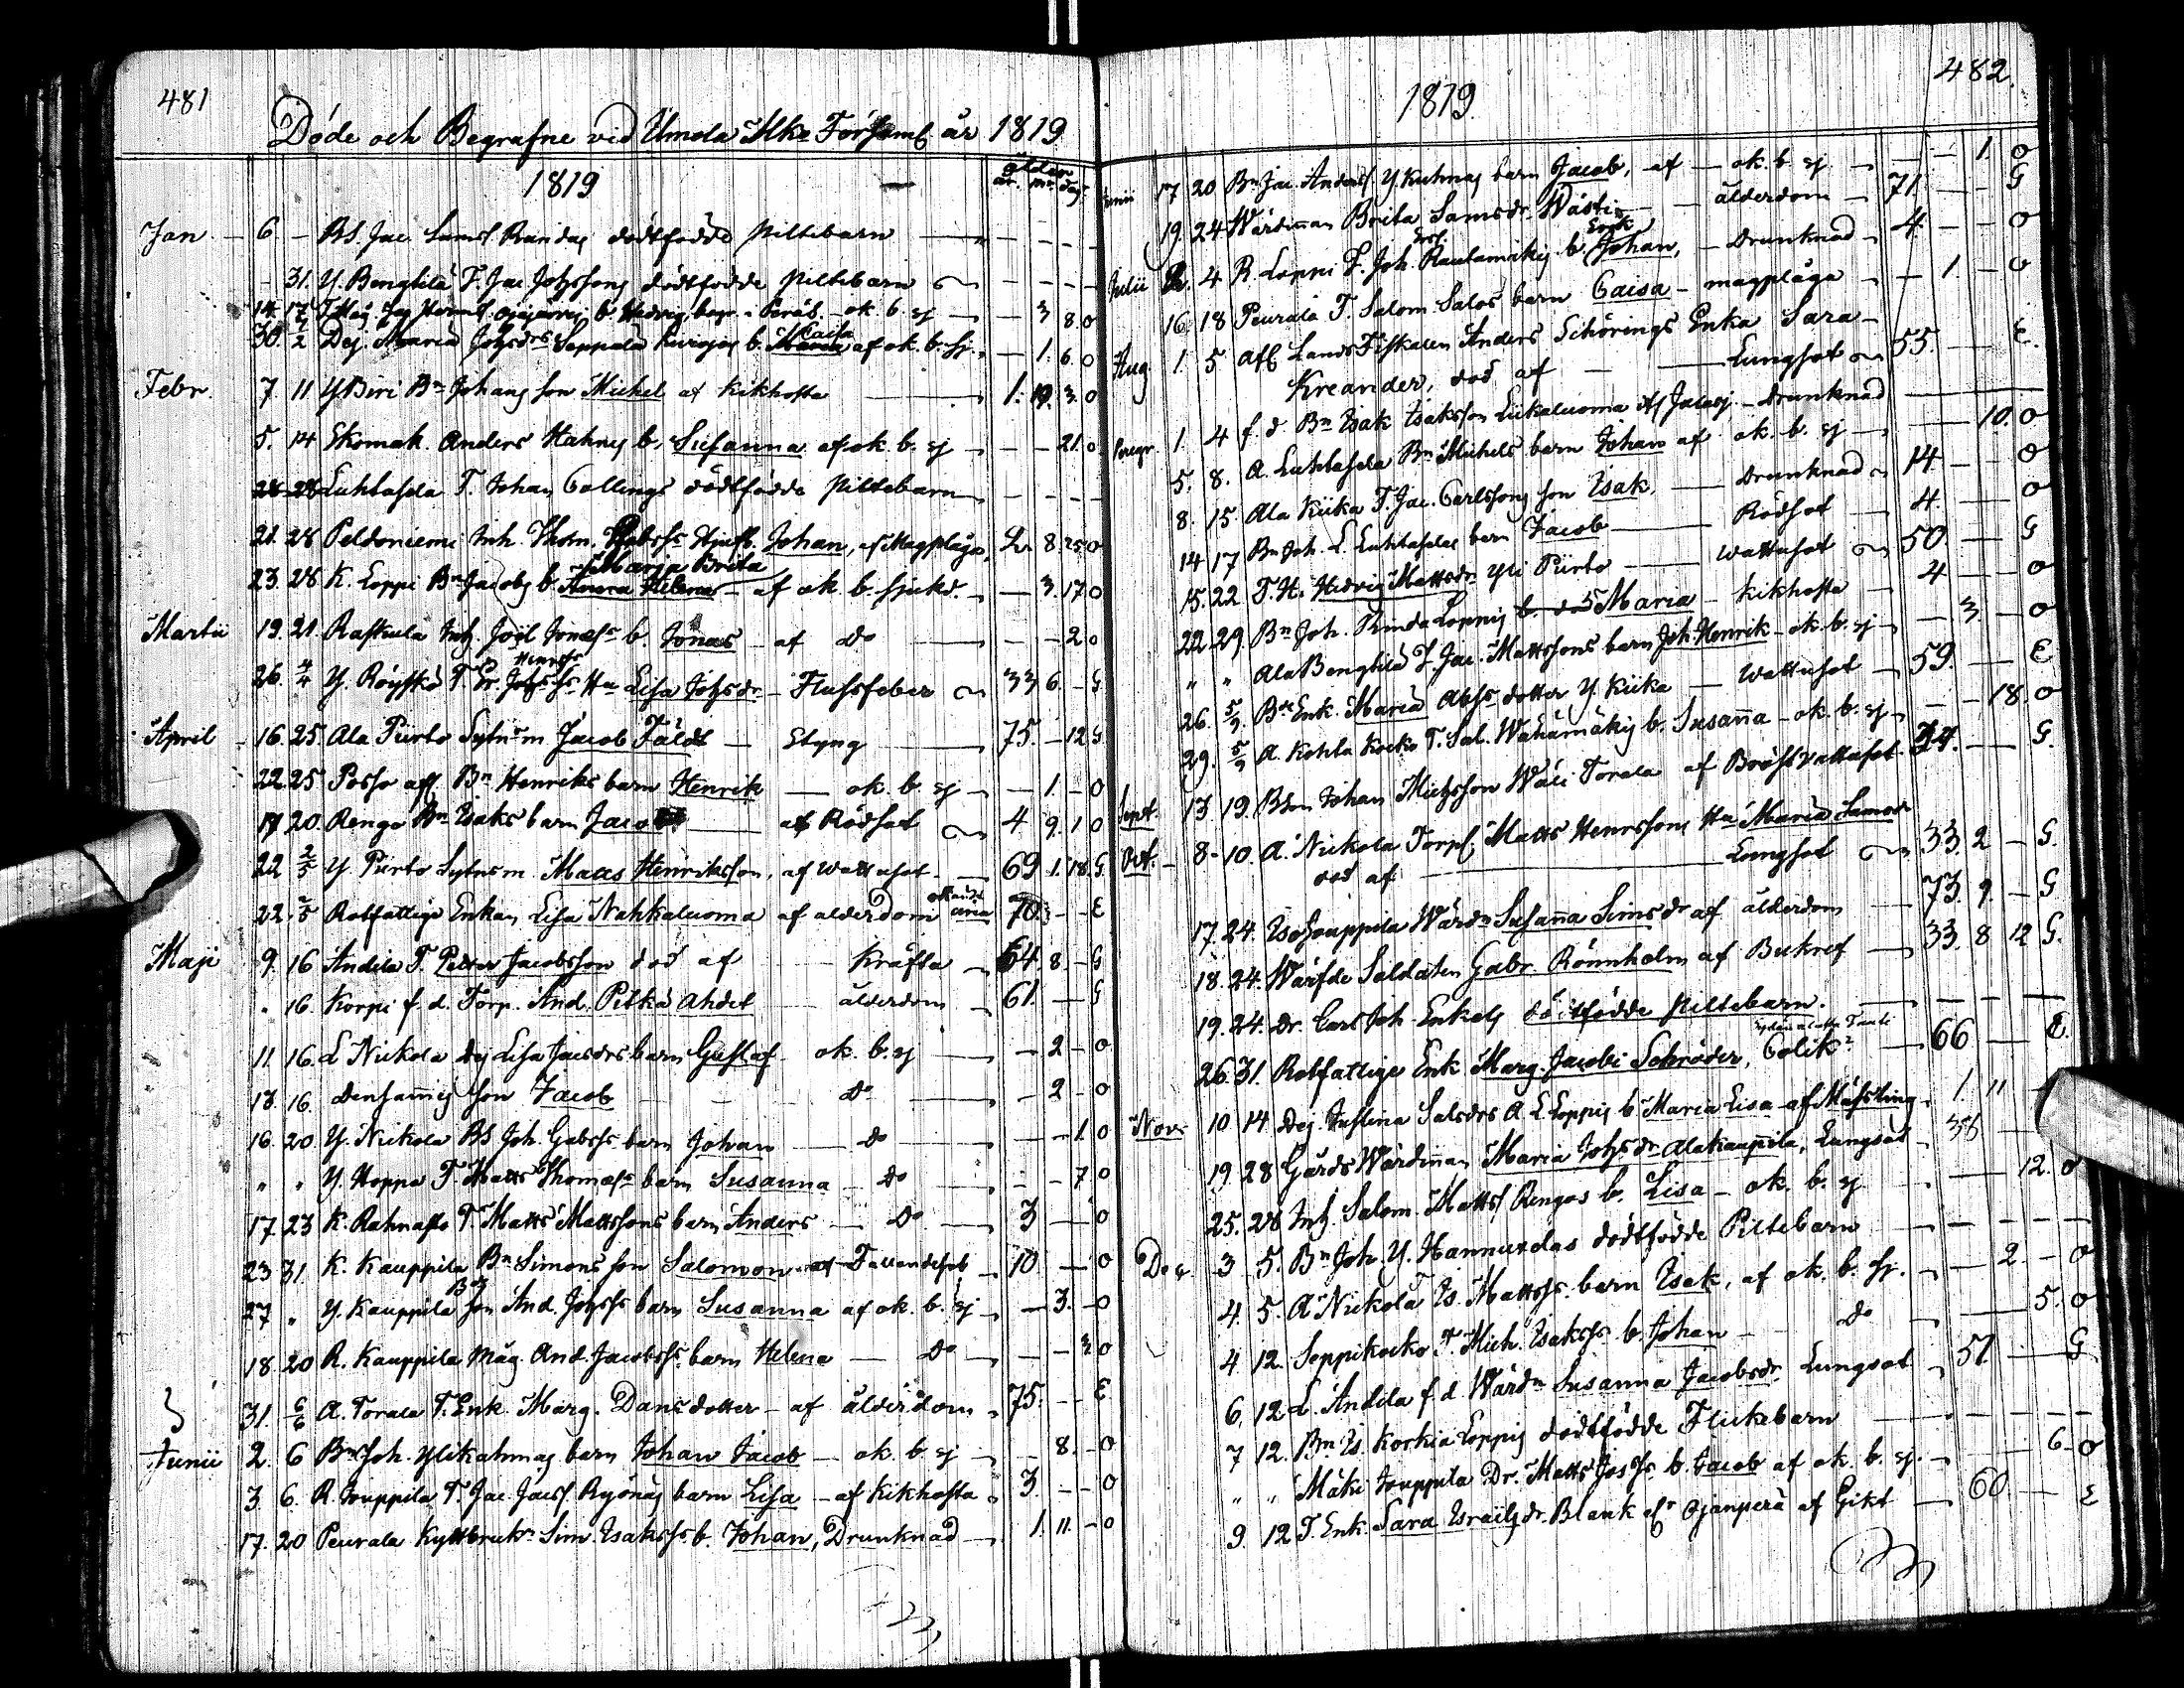 481
Döde och Begrafne vid Umola Ilka Församl år 1819
1819
ålder
år. mr. dag.
Jan. 6 - BS. Jac. Sams. Randag dödfödde piltebarn - - - -
31. Y. Bengtilä T. Jac Johssons dödfödde piltebarn - - - -
14. 17 b. Hedvig, - ok. b. sj - 3 8. o
30. 2/2 Dej. Maria Johsdrs Seppälä b. Maria Caisa af ok. b. sj. - 1. 6. o
Febr. 7. 11. Y Biri Bn Johans son Michel af kikhosta 1. 10. 3. o
5. 14 Skomak. Anders Hahns b. Susanna af ok. b. sj - - 21. o
28 28 Luhtasela T. Johan Collings dödfödde piltebarn - - - -
21. 28 Peldoniemi Inh. Thom. Johan, af Magplåga 2. 8. 25 o
23. 28 K. Loppi Bn Jacobs b. Anna Helena Marja Brita - af ok. b. sjukd. - 3. 17 o
Martii 19. 21. Raskula Inh. Joël Jonæss b. Jonas - af do - - 2 o
26. 4/4 Y. Röyskö T. Er. Johs Henrs Hu Lisa Johsdr - Flussfeber 33 6. - G
April 16. 25. Ala Piirto Sytn.m Jacob Fäldt - Styng 75. - 12 G
22. 25 Posso aff. Bn Henriks barn Henrik - ok. b. sj - 1. - o
17 20. Rengo Bn Isaks barn Jacob af Rödsot 4 9. 1 o
22 2/5 Y. Piirto Sytnsm. Matts Henriksson, af wattusot 69 1. 18. G
22. 2/5 Rotfattige Enkan Lisa Nahkaluoma af ålderdom 70. - - E
Maji 9. 16 Andila T. Petter Jacobsson död af Kräfta 64. 8. - G
" 16. Korpi f. d. Torp. And. Pitkä ahdet ålderdom 61. - G
11. 16. L Nickola Dej Lisa Jacsdrs barn Gustaf ok. b. sj - 2 - o
13. 16. Densammes son Jacob do - 2 - o
16. 20 Y. Nickola BS Joh. Gabrss. barn Johan do - - 1. o
" " Y. Hoppa T. Matts Thomæss barn Susanna - do - - 7 o
17. 23 K. Rahnasto T. Matts Mattssons barn Anders - do 3 - o
23 31. K. Kauppila Bn Simons son Salomon - af Fallandesot 10. - o
27 " Y. Kauppila Bds son And. Johss. barn Susanna af ok. b. sj - 3. - o
18. 20 R. Kauppila Mag. And. Jacobss. barn Helena - do - - 3 o
31. 6/6 A. Torala T. Enk. Marg. Dansdotter - af ålderdom 75. - - E
Junii 2. 6 Bn Joh. Ylikahmas barn Johan Jacob - ok. b. sj - 8. - o
3. 6. R. Jouppila T. Jac. Jacs. Ryönäs barn Lisa - af Kikhosta 3. - - o
17. 20 Peurala Kyttbruk. Sim. Isakss. b. Johan, Drunknad 1. 11. - o
482.
1819.
Junii 17 20 Bn Jac. Anderss. Y. Kuhnas barn Jacob, af - ok. b. sj - - 1. o
19. 24. Wärdinnan Brita Samsdr. Wästi - ålderdom 71. - - G
Julii 2. 4 R. Loppi T. Joh. Ersf. Rautamäkis b. Johan Erik, - Drunknad 4. - - o
16. 18 Peurala T. Salom. Salos barn Caisa - magplåga - 1 - o
Aug. 1. 5 afl Lands Fiskalen Anders Schörings Enka Sara
Kreander, död af - Lungsot 55. - E.
1. 4 f. d. Bn Isak Isaksson Liikaluoma - Drunknad
5. 8. A. Luhtasela Bn Michels barn Johan af ok. b. sj - - 10. o
8. 15. Ala Kiika T. Jac. Carlssons son Isak, - Drunknad 14 - - o
14 17 Bn Joh. L. Luhtaselas barn Jacob - Rödsot 4. - o
15. 22 T. H. Hedvig Mattsdr Yli Piirto - wattusot 50 - G
22. 29. Bn Joh. Rinda Loppis Maria - kikhosta 4 - - o
" " Ala Bengtilä T. Jac. Mattssons barn Joh. Henrik - ok. b. sj - 3. - o
26. 5/9 Bde Enk. Maria Abss dotter Y. Kiika - Wattusot 59. - - E
29. 5/9 A. Kohla Kocko T. Sal. Wähämäkis b. Susanna - ok. b. sj - - 18. o
Sept. 13 19. Bson Johan Michsson Wäli Torala af Bröstvattusot - - G.
Oct. 8 - 10. A. Nickola Torp. Matts Henrssons Hu Maria Samsdr
död af - Lungsot 33. 2 - G.
17. 24. Iso Jouppila Wärdn Susanna Simsdr af ålderdom 73. 9. - G
18. 24. Wärfde Soldaten Gabr. Rönnholm af Bukref 33. 8 12 G.
19. 24. Dr. Carl Joh. Enkels dödfödde piltebarn. - - -
26. 31. Rotfattige Enk. Marg. Jacobi Schröder, Colik 66 - E.
Nov. 10. 14. Dej. Justina Salsdrs A. L. Loppis b. Maria Lisa af Mässling 1. 11
19. 28 Gårds Wärdinnan Maria Johsdr Alakauppila, Lungsot 36
25. 28 Inh. Salom. Matts. Rengos b. Lisa - ok. b. sj - - 12. o
Dec. 3. 5. Bn Joh. Y. Hannuxelas dödfödde Piltebarn - - - -
4. 5. A. Nickola T. Is. Mattss. barn Isak, af ok. b. sj. - 2. - o
4. 12. Seppikocko T. Mich. Isakss. b. Johan - do - - 5. o
6. 12 L. Andila f. d. Wärdn Susanna Jacobsdr. Lungsot 51. - G
7 12. Bn Is. Korkia Loppis dödfödde Flickebarn - - - -
" " Mäki Jouppila Dr. Matts Joss b. Jacob af ok. b. sj. - - 6. o
9. 12 T. Enk. Sara Israilsdr. Blank afr Ojanperä af Gikt 60 - E